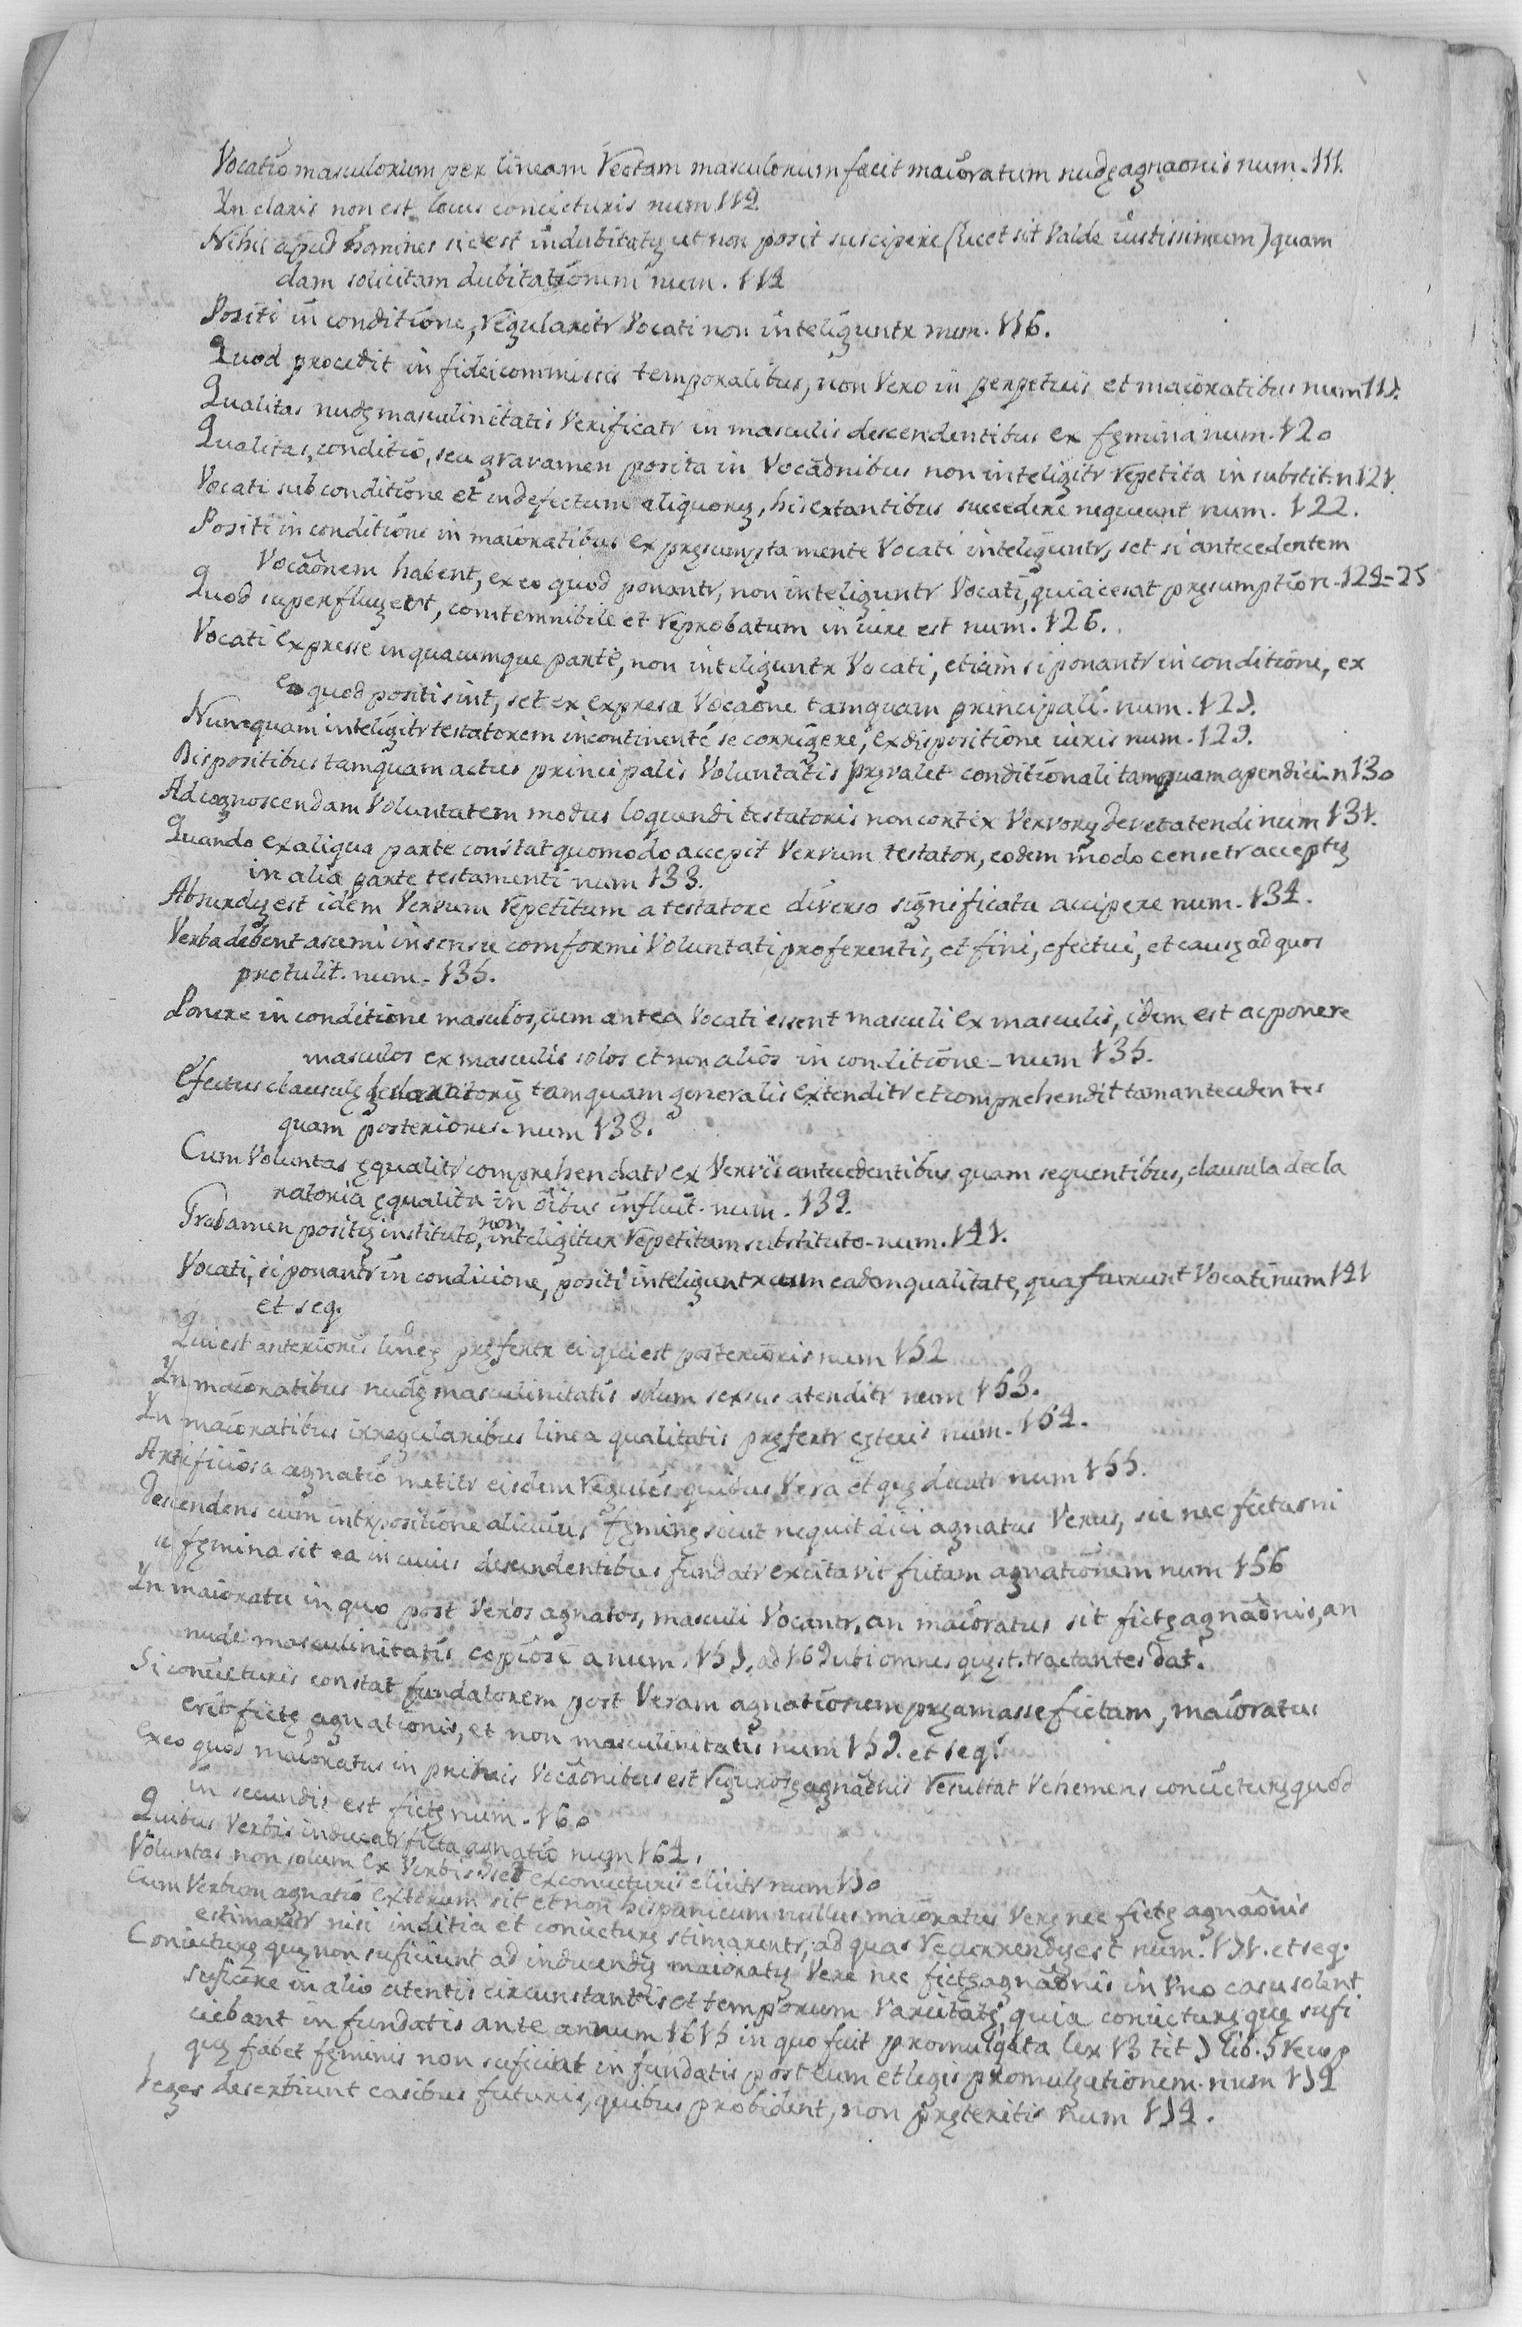 Vocatio masculorum per lineam rectam masculorum facit maioratum nudę agnaonis num. 111.
Yn claris non est locus coniecturis num 112
Nihil apud homines sic est indubitatū ut non posit suscipere (licet sit valde iustissimum) quam
dam solicitam dubitationem num. 114
Positi in conditione, regularitr vocati non inteliguntr num. 116.
Quod procedit in fideicommissis temporalibus, non vero in perpetuis et maioratibus num 117.
Qualitas nudę masculinitatis verificatr in masculis descendentibus ex fęmina num. 120
Qualitas, conditio, seu gravamen posita in vocaōnibus non inteligitr repetita in substit. n 121.
Vocati sub conditione et in defectum aliquorū, his extantibus succedere nequeunt num. 122.
Positi in conditione in maioratibus ex pręsumpta mente vocati inteliguntr, set si antecedentem
vocaōnem habent, ex eo quod ponantr, non inteliguntr vocati, quia cesat pręsumptio n. 124=25
Quod superfluū est, comtemnibile et reprobatum in iure est num. 126.
Vocati expresse in quacumque parte, non inteliguntr vocati, etiam si ponantr in conditione, ex
eo quod positi sint, set ex expresa vocaōne tamquam principali. num. 127.
Numquam inteligitr testatorem incontinenté se corrigere, ex dispositione iuris num. 129.
Dispositibus tamquam actus principalis voluntatis pręvalet conditionali tamquam apendici. n 130
Ad cognoscendam voluntatem modus loquendi testatoris non cortex vervorū devet atendi num 131.
Quando ex aliqua parte constat quomodo accepit vervum testator, eodem modo censetr acceptū
in alia parte testamenti num 133.
Absurdū est idem vervum repetitum a testatore diverso significatu accipere num. 134.
Verba debent asumi in sensu comformi voluntati proferentis, et fini, efectui, et causę ad quos
protulit. num. 135.
Ponere in conditione masculos, cum antea vocati essent masculi ex masculis, idem est ac ponere
masculos ex masculis solos et non alios in conditione. num 135.
Efectus clausulę tamquam generalis extenditr et comprehendit tam antecedentes
quam posteriores. num 138.
Cum voluntas ęqualitr comprehendatr ex vervis antecedentibus quam sequentibus, clausula decla
ratoria ęqualitr in oībus influit. num. 139.
Grabamen positū instituto, non inteligitur repetitum substituto. num. 141.
Vocati, si ponantr in condicione, positi inteliguntr cum eadem qualitate, qua fuerunt vocati num 141
et seq.
Qui est anterioris lineę pręfertr ei qui est posterioris num 152
Yn maioratibus nudę masculinitatis solum sexsus atenditr num 153.
Yn maioratibus irregularibus linea qualitatis pręfertr cęteris num. 154.
Artificiosa agnatio metitr eisdem regulis quibus vera et quę num 155.
Descendens cum intrpositione alicuius fęminę sicut nequit dici agnatus verus, sic nec fictus ni
si fęmina sit ea in cuius descendentibus fundatr excitavit fictam agnationem num 156
Yn maioratu in quo post veros agnatos, masculi vocantr, an maioratus sit fictę agnaōnis, an
nude masculinitatis copiose a num. 157. ad 169 ubi omnes quęst. tractantes dat.
Si coniecturis constat fundatorem post veram agnationem pręamasse fictam, maioratus
erit fictę agnationis, et non masculinitatis num 159. et seq.
Ex eo quos maioratus in primis vocaōnibus est rigurosę agnaōnis resultat vehemens coniectura quod
in secundis est fictę num. 160
Quibus verbis inducatr ficta agnatio num 164.
Voluntas non solum ex verbis set ex coniecturis elicitr num 170
Cum verbum agnatio exterum sit et non hispanicum nullus maioratus verę nec fictę agnaōnis
estimaretr nisi inditia et coniecturę stimarentr, ad quas recurrendū est num. 171. et seq.
Coniecturę quę non suficiunt ad inducendū maioratū vere nec fictę agnaōnis in uno casu solent
suficere in alio atentis circunstantiis et temporum varietate, quia coniecturę quę sufi
ciebant in fundatis ante annum 1615 in quo fuit promulgata lex 13 tit 7 lib. 5 recop
quę fabet fęminis non suficiat in fundatis post eum et legis promulgationem. num 172
Leges deserbiunt casibus futuris, quibus probident, non pręteritis num 174.